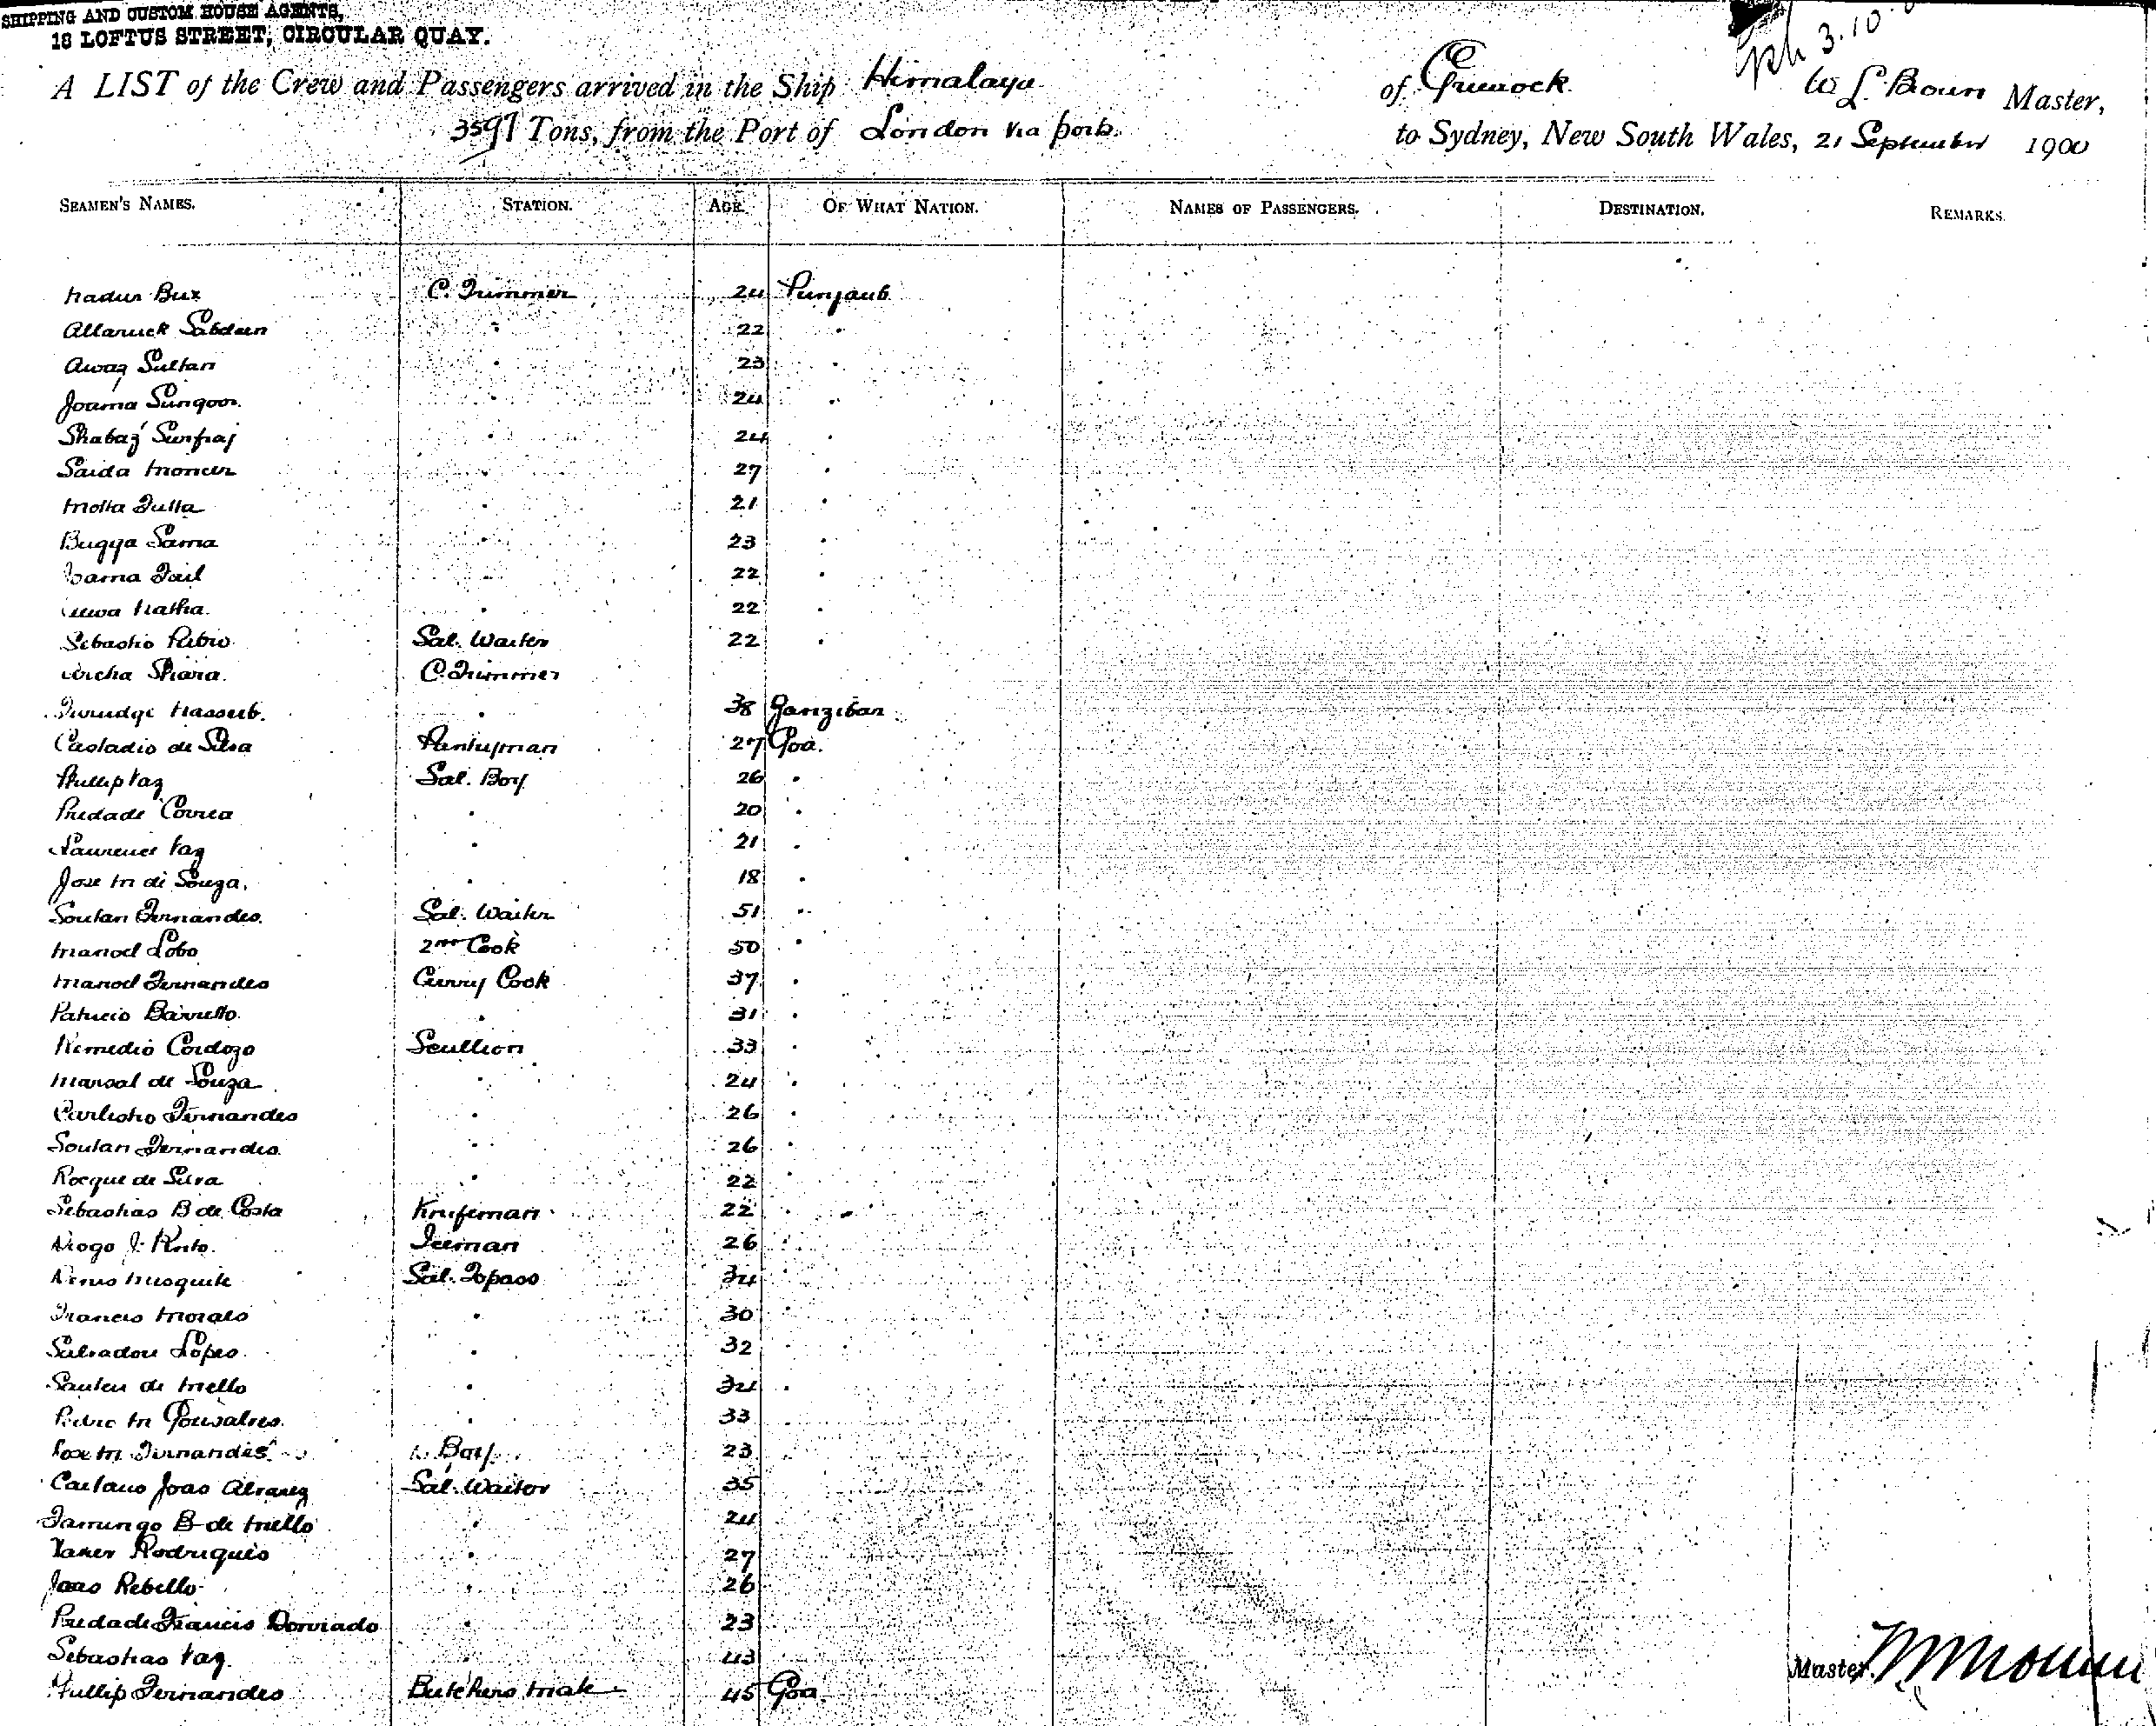 SHIPPING AND CUSTOM HOUSE AGENTS,
18 LOFTUS STREET, CIRCULAR QUAY.
3.10
A LIST of the Crew and Passengers arrived in the Ship Himalaya of Greenock W L Brown Master,
3597 Tons, from the Port of London via ports to Sydney, New South Wales, 21 September 1900
SEAMEN'S NAMES. STATION. AGE. OF WHAT NATION. NAMES OF PASSENGERS. DESTINATION. REMARKS.
Nadur Bux C. Trimmer 24 Punjaub
Allaruck Sabdeen " 22 "
Awaz Sultan " 23 "
Jouma Sungoor " 24 "
Shabaz Surfraj " 24 "
Saida Moneer " 27 "
Motta Dulla " 21 "
Bugya Sama " 23 "
22 "
Natha " 22 "
Sebastio Sal. Waiter 22 "
C. Trimmer
Nasseeb. " 38 Zanzibar
Castadio de Silva Pantryman 27 Goa.
Phillip Vaz Sal. Boy 26 "
Piedade Correa " 20 "
Laurence Vaz " 21 "
Jose M de Souza. " 18 "
Soutan Fernandes. Sal. Waiter 51 "
Manoel Lobo 2nd Cook 50 "
Manoel Fernandes Curry Cook 37 "
Patricio Barretto " 31 "
Remedio Cordozo Scullion 33 "
Marsal de Souza " 24 "
Carlistio Fernandes " 26 "
Soutan Fernandes. " 26 "
Rocque de Silva " 22
Sebastiao B de Costa Knifeman 22 "
Diogo J. Pinto. Iceman 26 "
Denis Mesquite Sal. Topass 34
Francis Moraes " 30
Salvadore Lopes " 32
Santen de Mello " 34 "
Pedro M Gonsalves. " 33
Jose M. Fernandes Boy 23
Caetano Joao Alvarez Sal. Waiter 35
Damungo B de Mello " 24
Xavier Rodrigues " 27
Joao Rebello " 26
Piedade Francis Dorviado " 23
Sebastiao Vaz. 43
Phillip Fernandes Butchers Mate 45 Goa
Master.